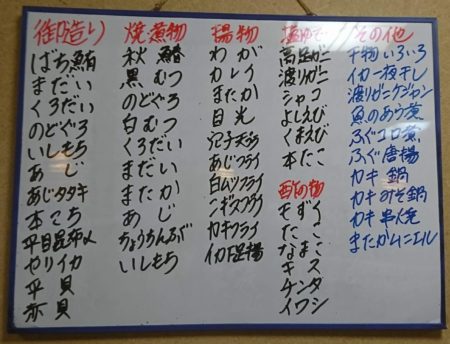 御造り
ばち鮪
まだい
くろだい
のどぐろ
いしもち
あじ
あじタタキ
本こち
平目昆布〆
ヤリイカ
平貝
赤貝
焼煮物
秋鰆
黒むつ
のどぐろ
白むつ
くろだい
まだい
またか
あじ
ちょうちんふぐ
いしもち
揚物
わかが
カレイ
またか
目光
穴子天ぷら
あじフライ
白ムツフライ
ニギスフライ
カキフライ
イカ下足揚
塩ゆで
高足がに
渡りがに
シャコ
よしえび
くまえび
本たこ
酢の物
もずく
たこ
なまこ
キス
チンタ
イワシ
その他
干物いろいろ
イカ一夜干し
渡りガニケジャン
魚のあら煮
ふぐコロ煮
ふぐ唐揚
カキ鍋
カキみそ鍋
カキ串焼
またかムニエル